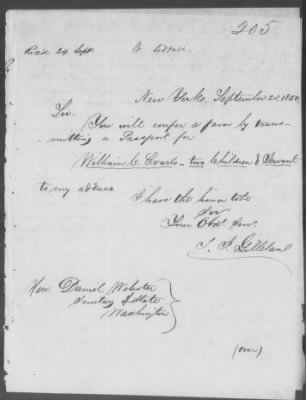 205
Recd 24 Sept
New York, September 23, 1850
Sir
You will confer a favor by trans-
mitting a Passport for
William C Evarts - two Children & Servant
to my address
I have the honor to be
Sir
Your Obdt. Serv.
Hon. Daniel Webster
Secretary of State
Washington
(over)